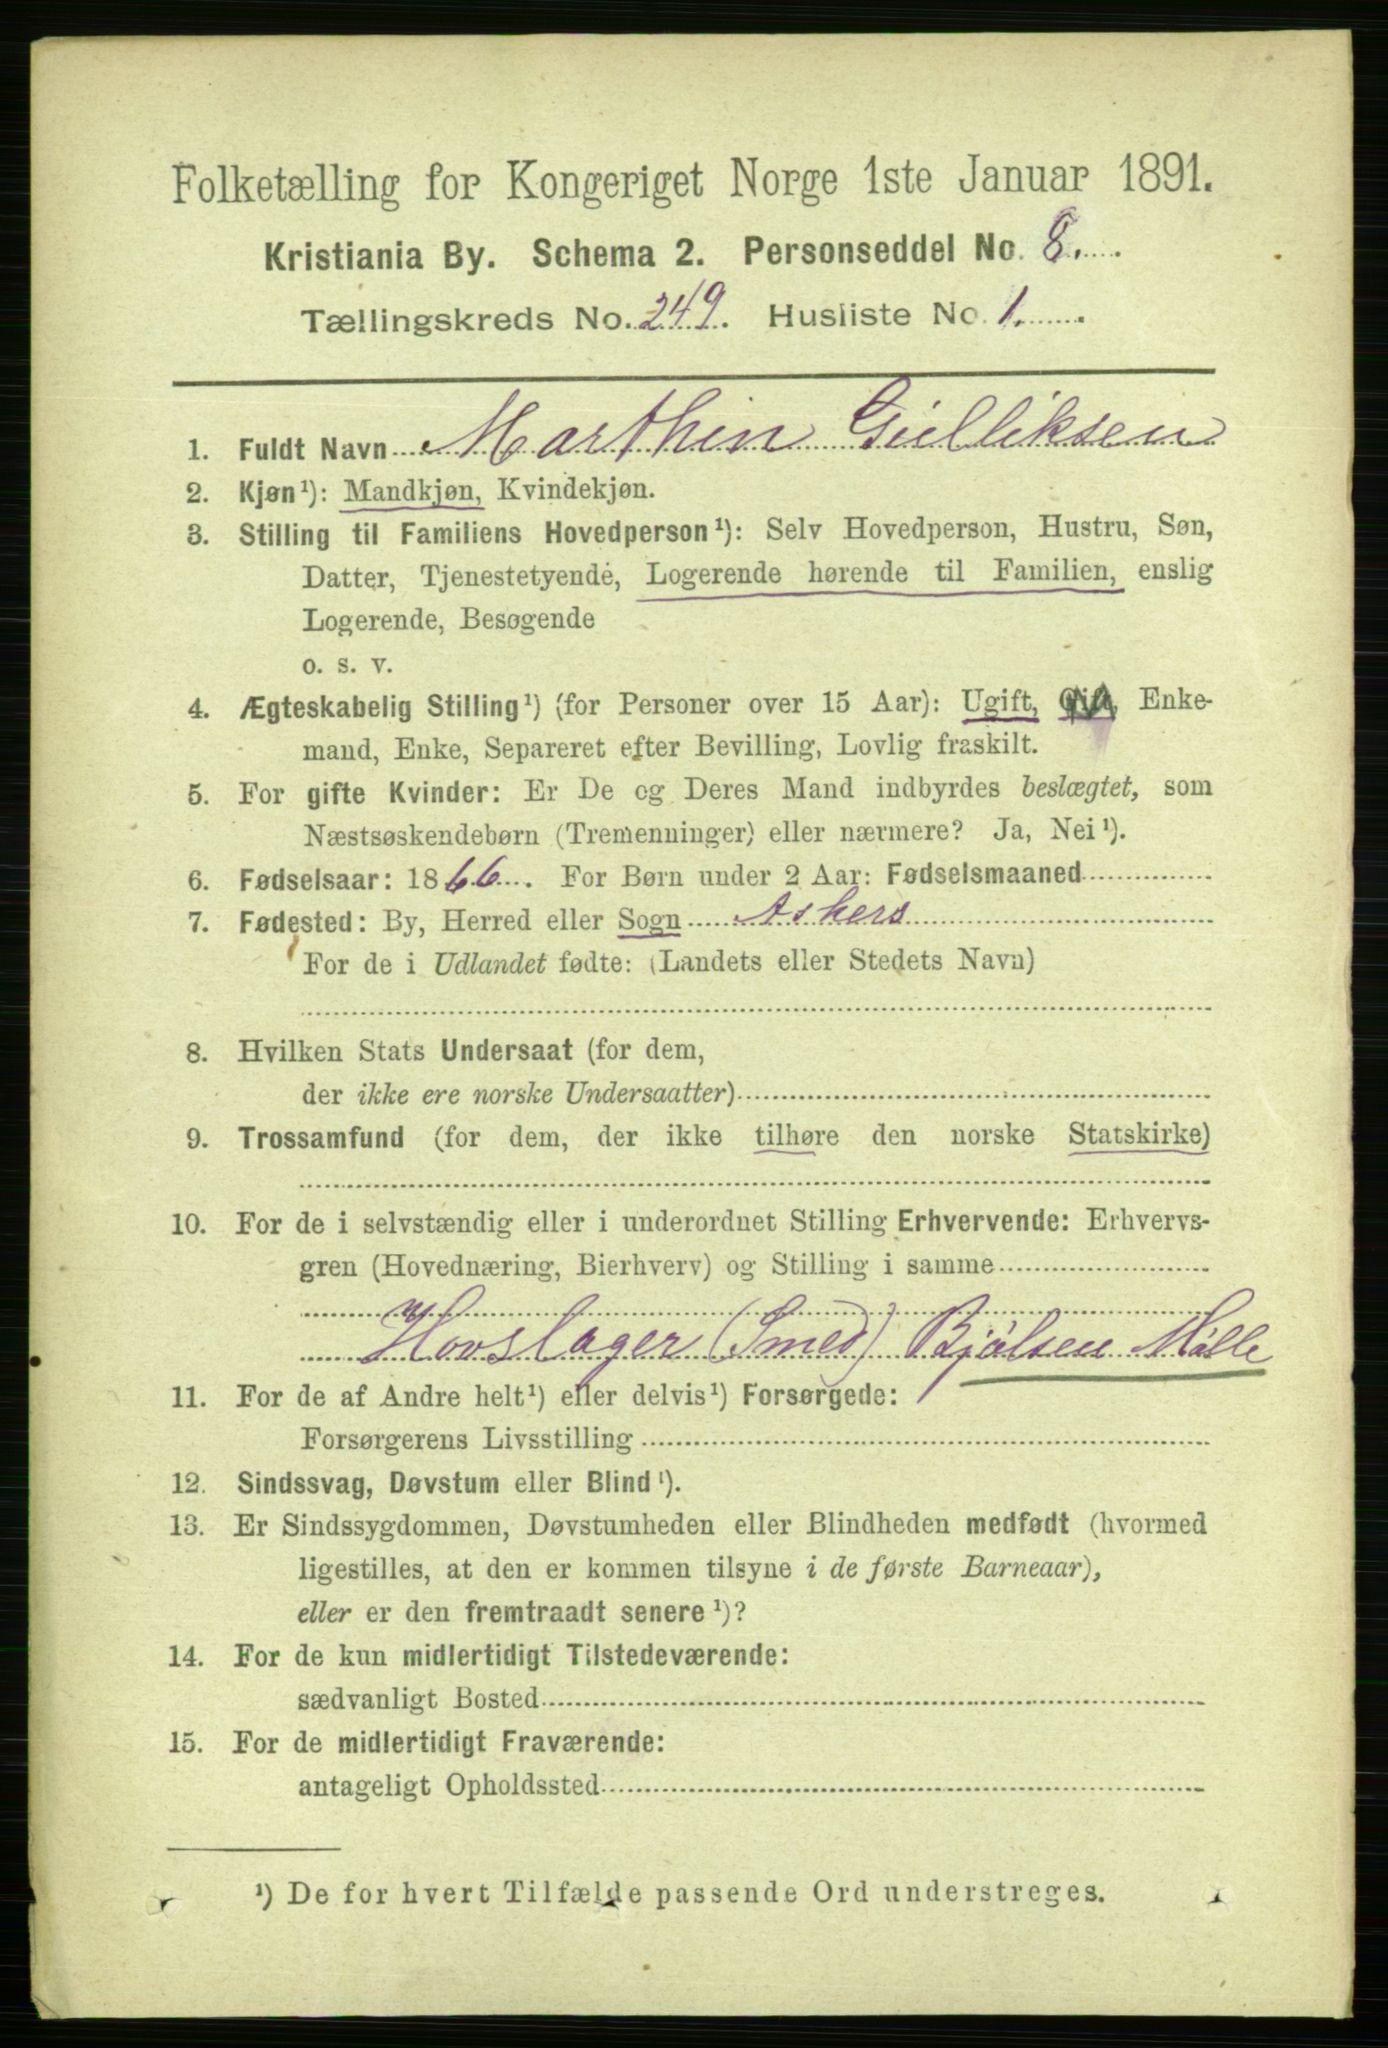 Folketælling for Kongeriget Norge 1ste Januar 1891.
Kristiania By. Schema 2. Personseddel No. 8.
Tællingskreds No. 249. Husliste No. 1.
1. Fuldt Navn Marthin Gulliksen
2. Kjøn¹): Mandkjøn, Kvindekjøn.
3. Stilling til Familiens Hovedperson¹): Selv Hovedperson, Hustru, Søn,
Datter, Tjenestetyende, Logerende hørende til Familien, enslig
Logerende, Besøgende
o. s. v.
4. Ægteskabelig Stilling¹) (for Personer over 15 Aar): Ugift, Gift, Enke-
mand, Enke, Separeret efter Bevilling, Lovlig fraskilt.
5. For gifte Kvinder: Er De og Deres Mand indbyrdes beslægtet, som
Næstsøskendebørn (Tremenninger) eller nærmere? Ja, Nei¹).
6. Fødselsaar: 1866. For Børn under 2 Aar: Fødselsmaaned
7. Fødested: By, Herred eller Sogn Askers
For de i Udlandet fødte: (Landets eller Stedets Navn)
8. Hvilken Stats Undersaat (for dem,
der ikke ere norske Undersaatter)
9. Trossamfund (for dem, der ikke tilhøre den norske Statskirke)
10. For de i selvstændig eller i underordnet Stilling Erhvervende: Erhvervs-
gren (Hovednæring, Bierhverv) og Stilling i samme
Hovslager (Smed) Bjølsen Mølle
11. For de af Andre helt¹) eller delvis¹) Forsørgede:
Forsørgerens Livsstilling
12. Sindssvag, Døvstum eller Blind¹).
13. Er Sindssygdommen, Døvstumheden eller Blindheden medfødt (hvormed
ligestilles, at den er kommen tilsyne i de første Barneaar),
eller er den fremtraadt senere¹)?
14. For de kun midlertidigt Tilstedeværende:
sædvanligt Bosted
15. For de midlertidigt Fraværende:
antageligt Opholdssted
¹) De for hvert Tilfælde passende Ord understreges.